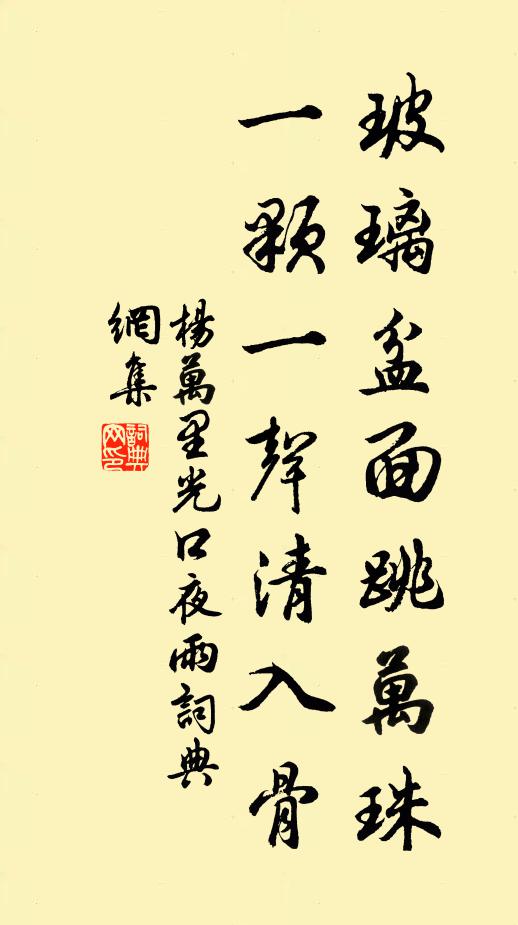 玻璃盆面跳萬珠
一顆一聲清入骨
楊萬里光口夜雨詞典
網集
詞典
网印